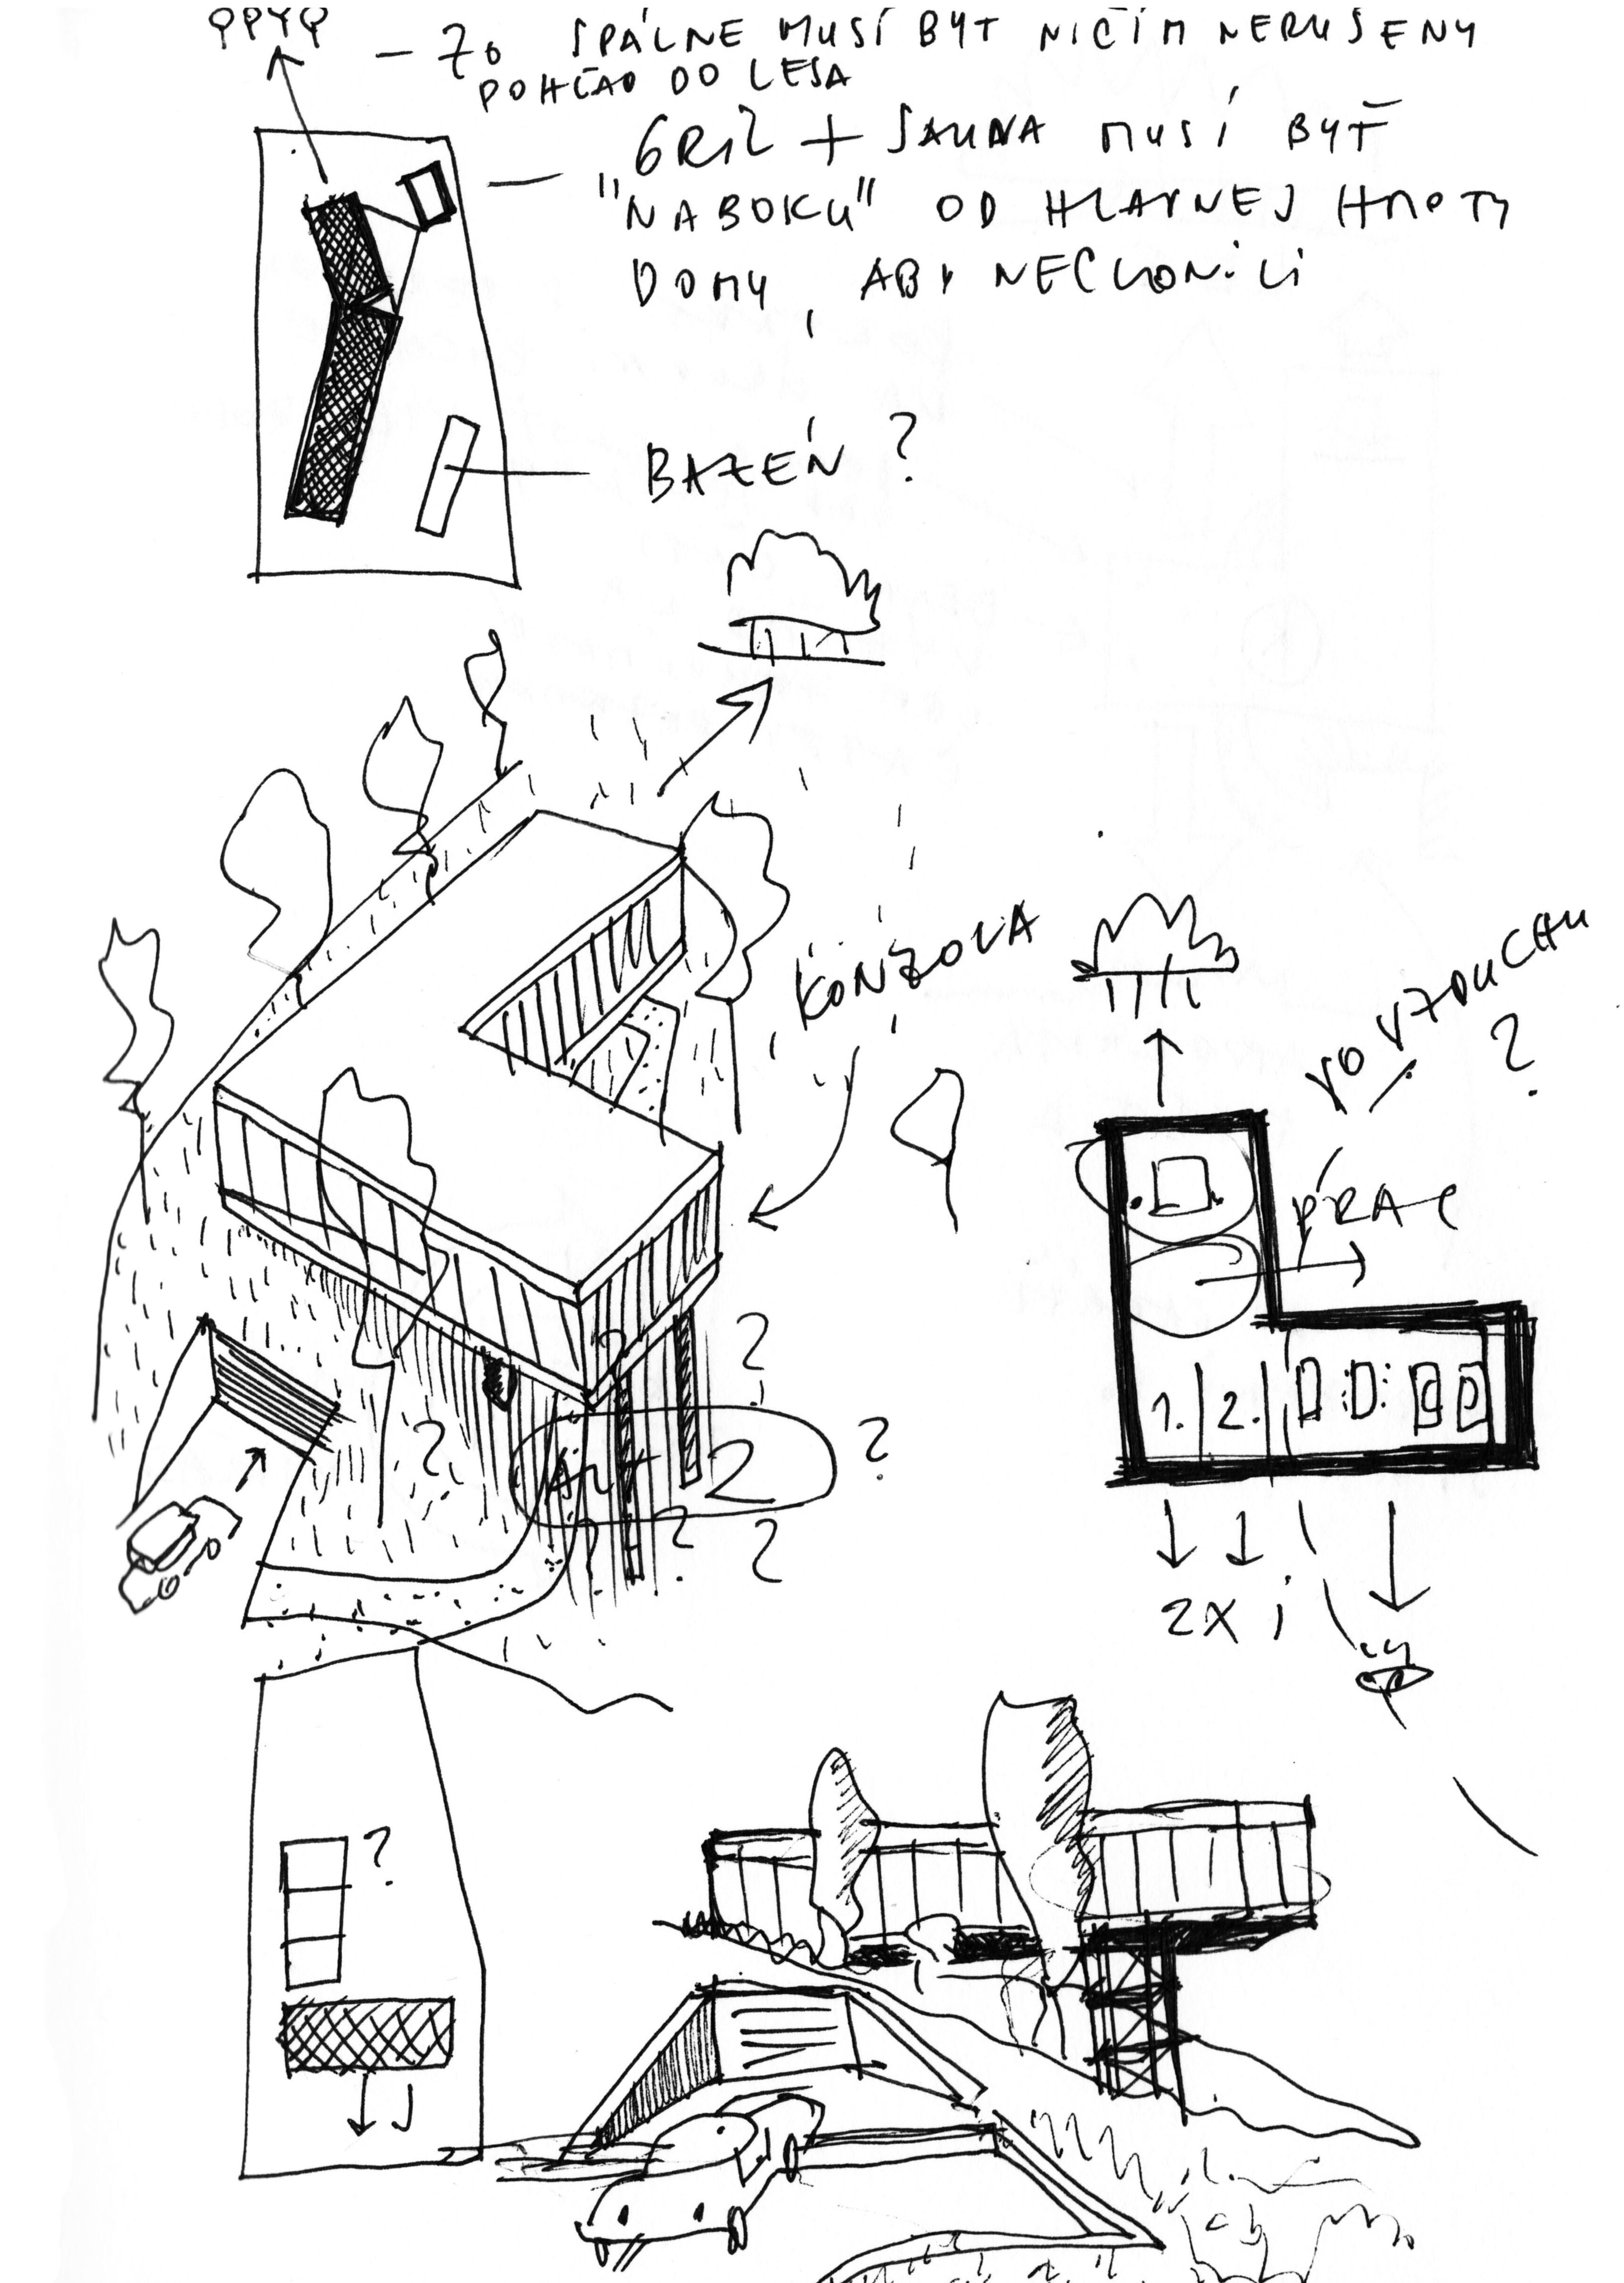 – ZO SPÁLNE MUSÍ BYT NIČÍM NERUŠENY
POHĽAD DO LESA
GRIL + SAUNA MUSÍ BYŤ
"NABOKU" OD HLAVNEJ HMOTY
DOMU, ABY NECLONILI
BAZÉN ?
KONZOLA
VO VZDUCHU
?
PRAC
1. 2.
2X i
?
?
?
?
?
?
ALT 2
?
J